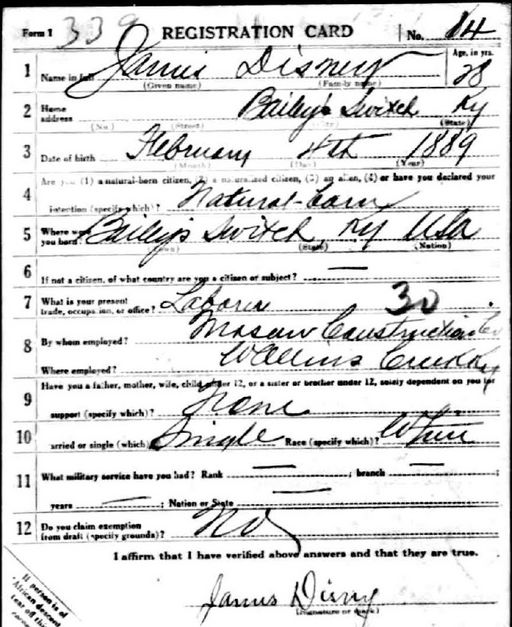 Form 1 339 REGISTRATION CARD No. 14
1 Name in full James Disney Age, in yrs. 28
(Given name) (Family name)
2 Home address Bailey's Switch Ky
(No.) (Street) (State)
3 Date of birth February 4th 1889
(Month) (Day) (Year)
Are you (1) a natural-born citizen, (2) a naturalized citizen, (3) an alien, (4) or have you declared your
4 intention (specify which)? Natural-born
5 Where were you born? Bailey's Switch, Ky USA
(Town) (State) (Nation)
6 If not a citizen, of what country are you a citizen or subject? —
7 What is your present trade, occupation, or office? Laborer 30
8 By whom employed? Mason Construction Co
Where employed? Wallins Creek Ky
9 Have you a father, mother, wife, child under 12, or a sister or brother under 12, solely dependent on you for
support (specify which)? None
10 Married or single (which)? Single Race (specify which)? White
11 What military service have you had? Rank — ; branch — ;
years — ; Nation or State —
12 Do you claim exemption from draft (specify grounds)? No
I affirm that I have verified above answers and that they are true.
James Disney
(Signature or mark)
If person is of
African descent
tear off this